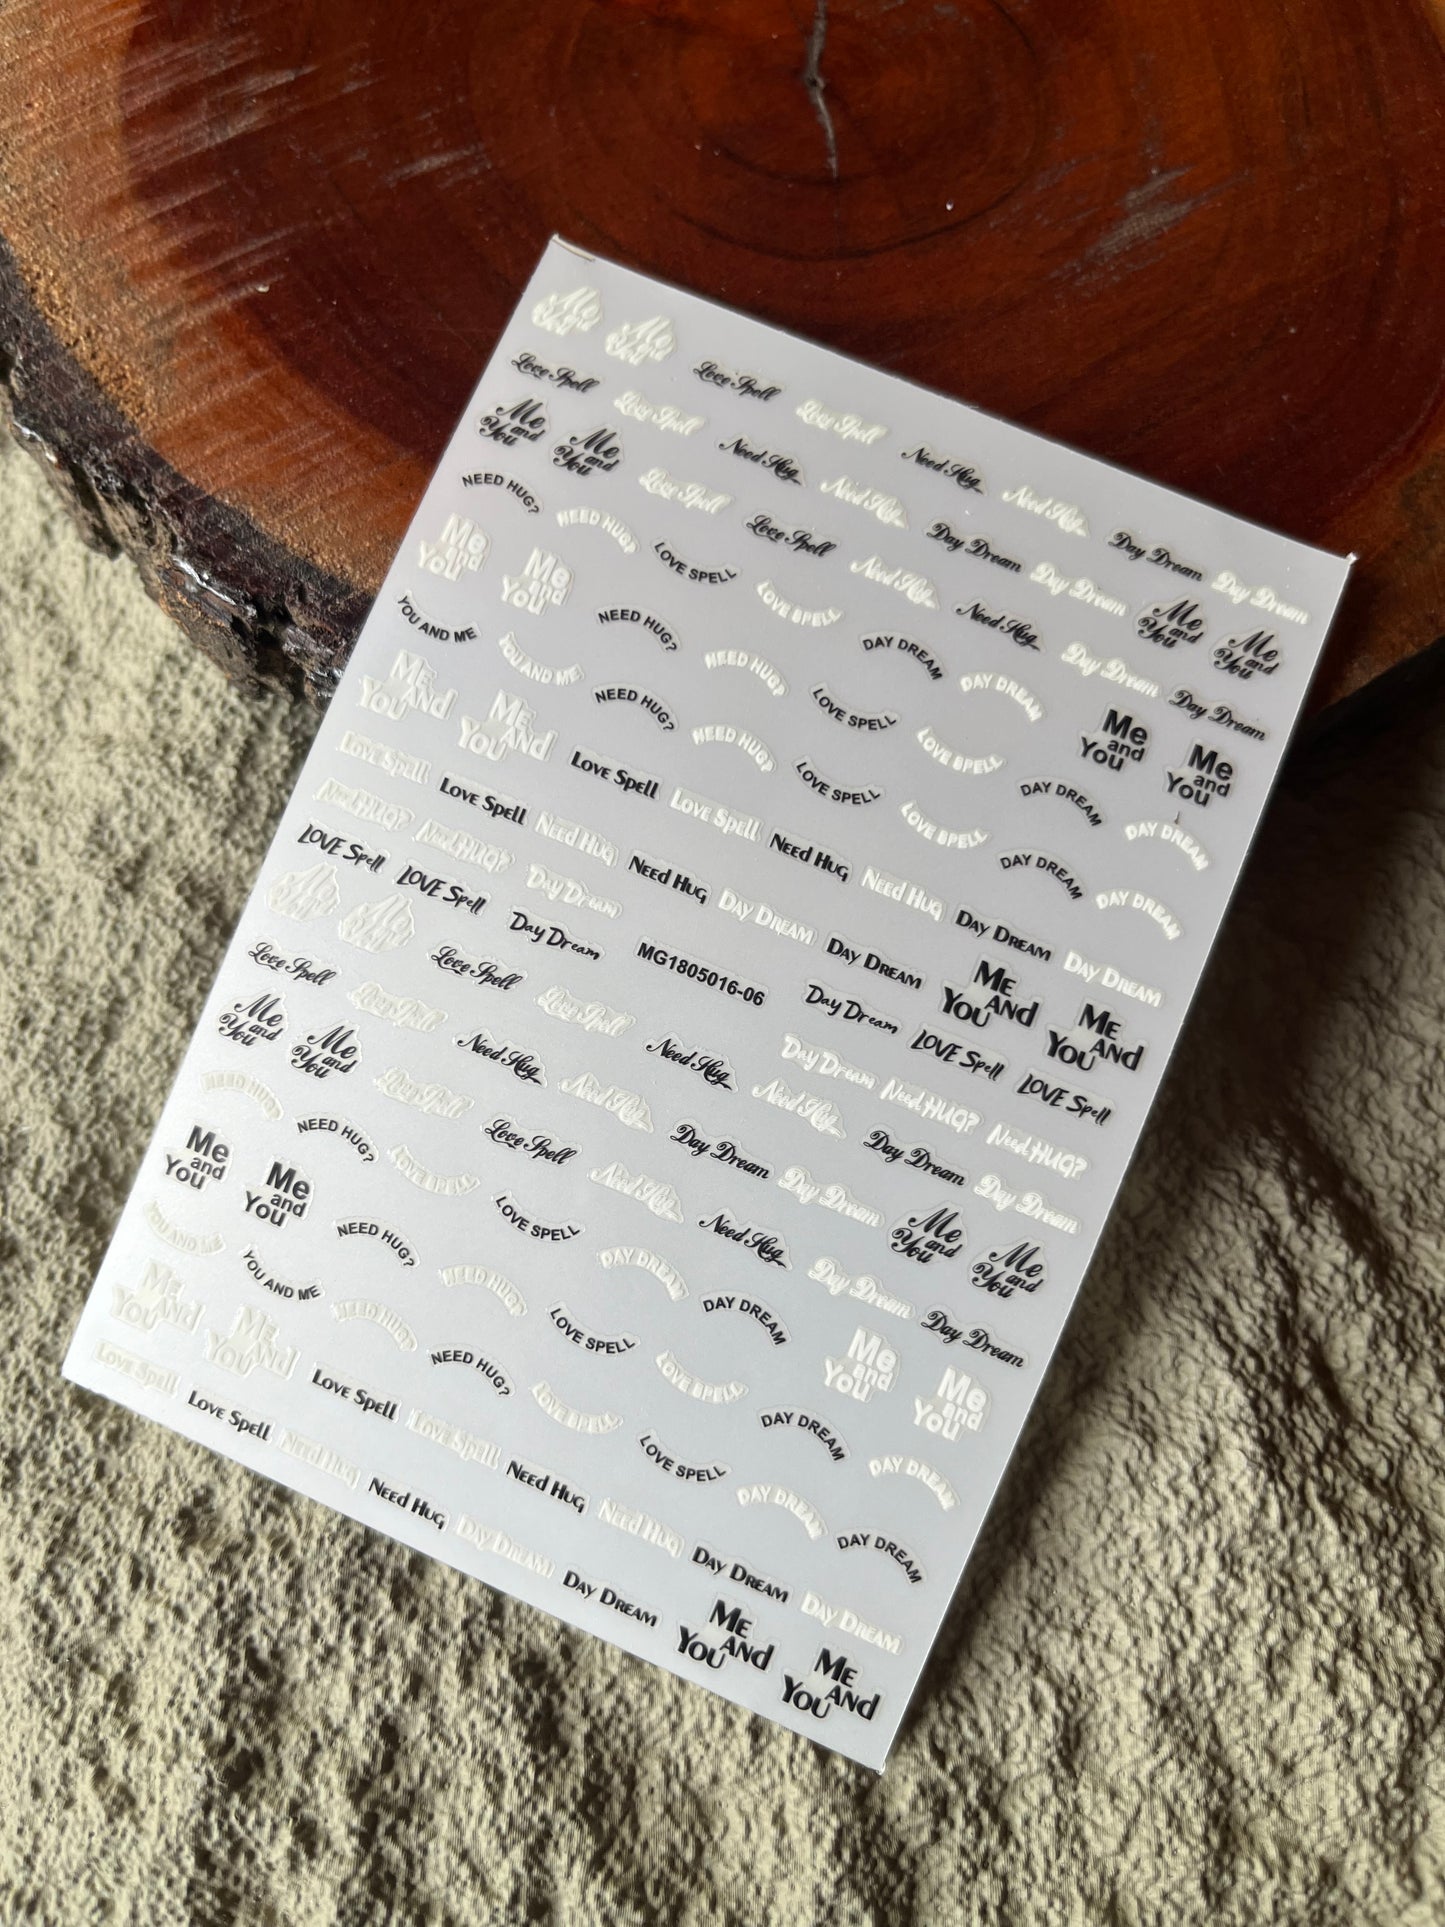 Me and You
Me and You
Love Spell
Love Spell
Love Spell
Love Spell
Need Hug
Need Hug
Need Hug
Need Hug
Me and You
Me and You
Love Spell
Love Spell
Day Dream
Day Dream
Day Dream
Day Dream
NEED HUG?
NEED HUG?
LOVE SPELL
LOVE SPELL
Need Hug
Need Hug
Day Dream
Day Dream
Me and You
Me and You
Me and You
Me and You
NEED HUG?
NEED HUG?
DAY DREAM
DAY DREAM
Me and You
Me and You
YOU AND ME
YOU AND ME
NEED HUG?
NEED HUG?
LOVE SPELL
LOVE SPELL
DAY DREAM
DAY DREAM
Me And You
Me And You
LOVE SPELL
LOVE SPELL
DAY DREAM
DAY DREAM
Love Spell
Love Spell
Love Spell
Love Spell
Need Hug
Need Hug
Need Hug
Need Hug
Day Dream
Day Dream
Day Dream
Day Dream
Need HUG?
Need HUG?
LOVE Spell
LOVE Spell
Day Dream
Day Dream
MG1805016-06
Day Dream
Day Dream
LOVE Spell
LOVE Spell
Need HUG?
Need HUG?
Me And You
Me And You
Me and You
Me and You
Love Spell
Love Spell
Love Spell
Love Spell
Need Hug
Need Hug
Need Hug
Need Hug
Me and You
Me and You
Love Spell
Love Spell
Day Dream
Day Dream
Day Dream
Day Dream
NEED HUG?
NEED HUG?
LOVE SPELL
LOVE SPELL
Need Hug
Need Hug
Day Dream
Day Dream
Me and You
Me and You
Me and You
Me and You
NEED HUG?
NEED HUG?
DAY DREAM
DAY DREAM
Me and You
Me and You
YOU AND ME
YOU AND ME
NEED HUG?
NEED HUG?
LOVE SPELL
LOVE SPELL
DAY DREAM
DAY DREAM
Me And You
Me And You
LOVE SPELL
LOVE SPELL
DAY DREAM
DAY DREAM
Love Spell
Love Spell
Love Spell
Love Spell
Need Hug
Need Hug
Need Hug
Need Hug
Day Dream
Day Dream
Day Dream
Day Dream
Me And You
Me And You